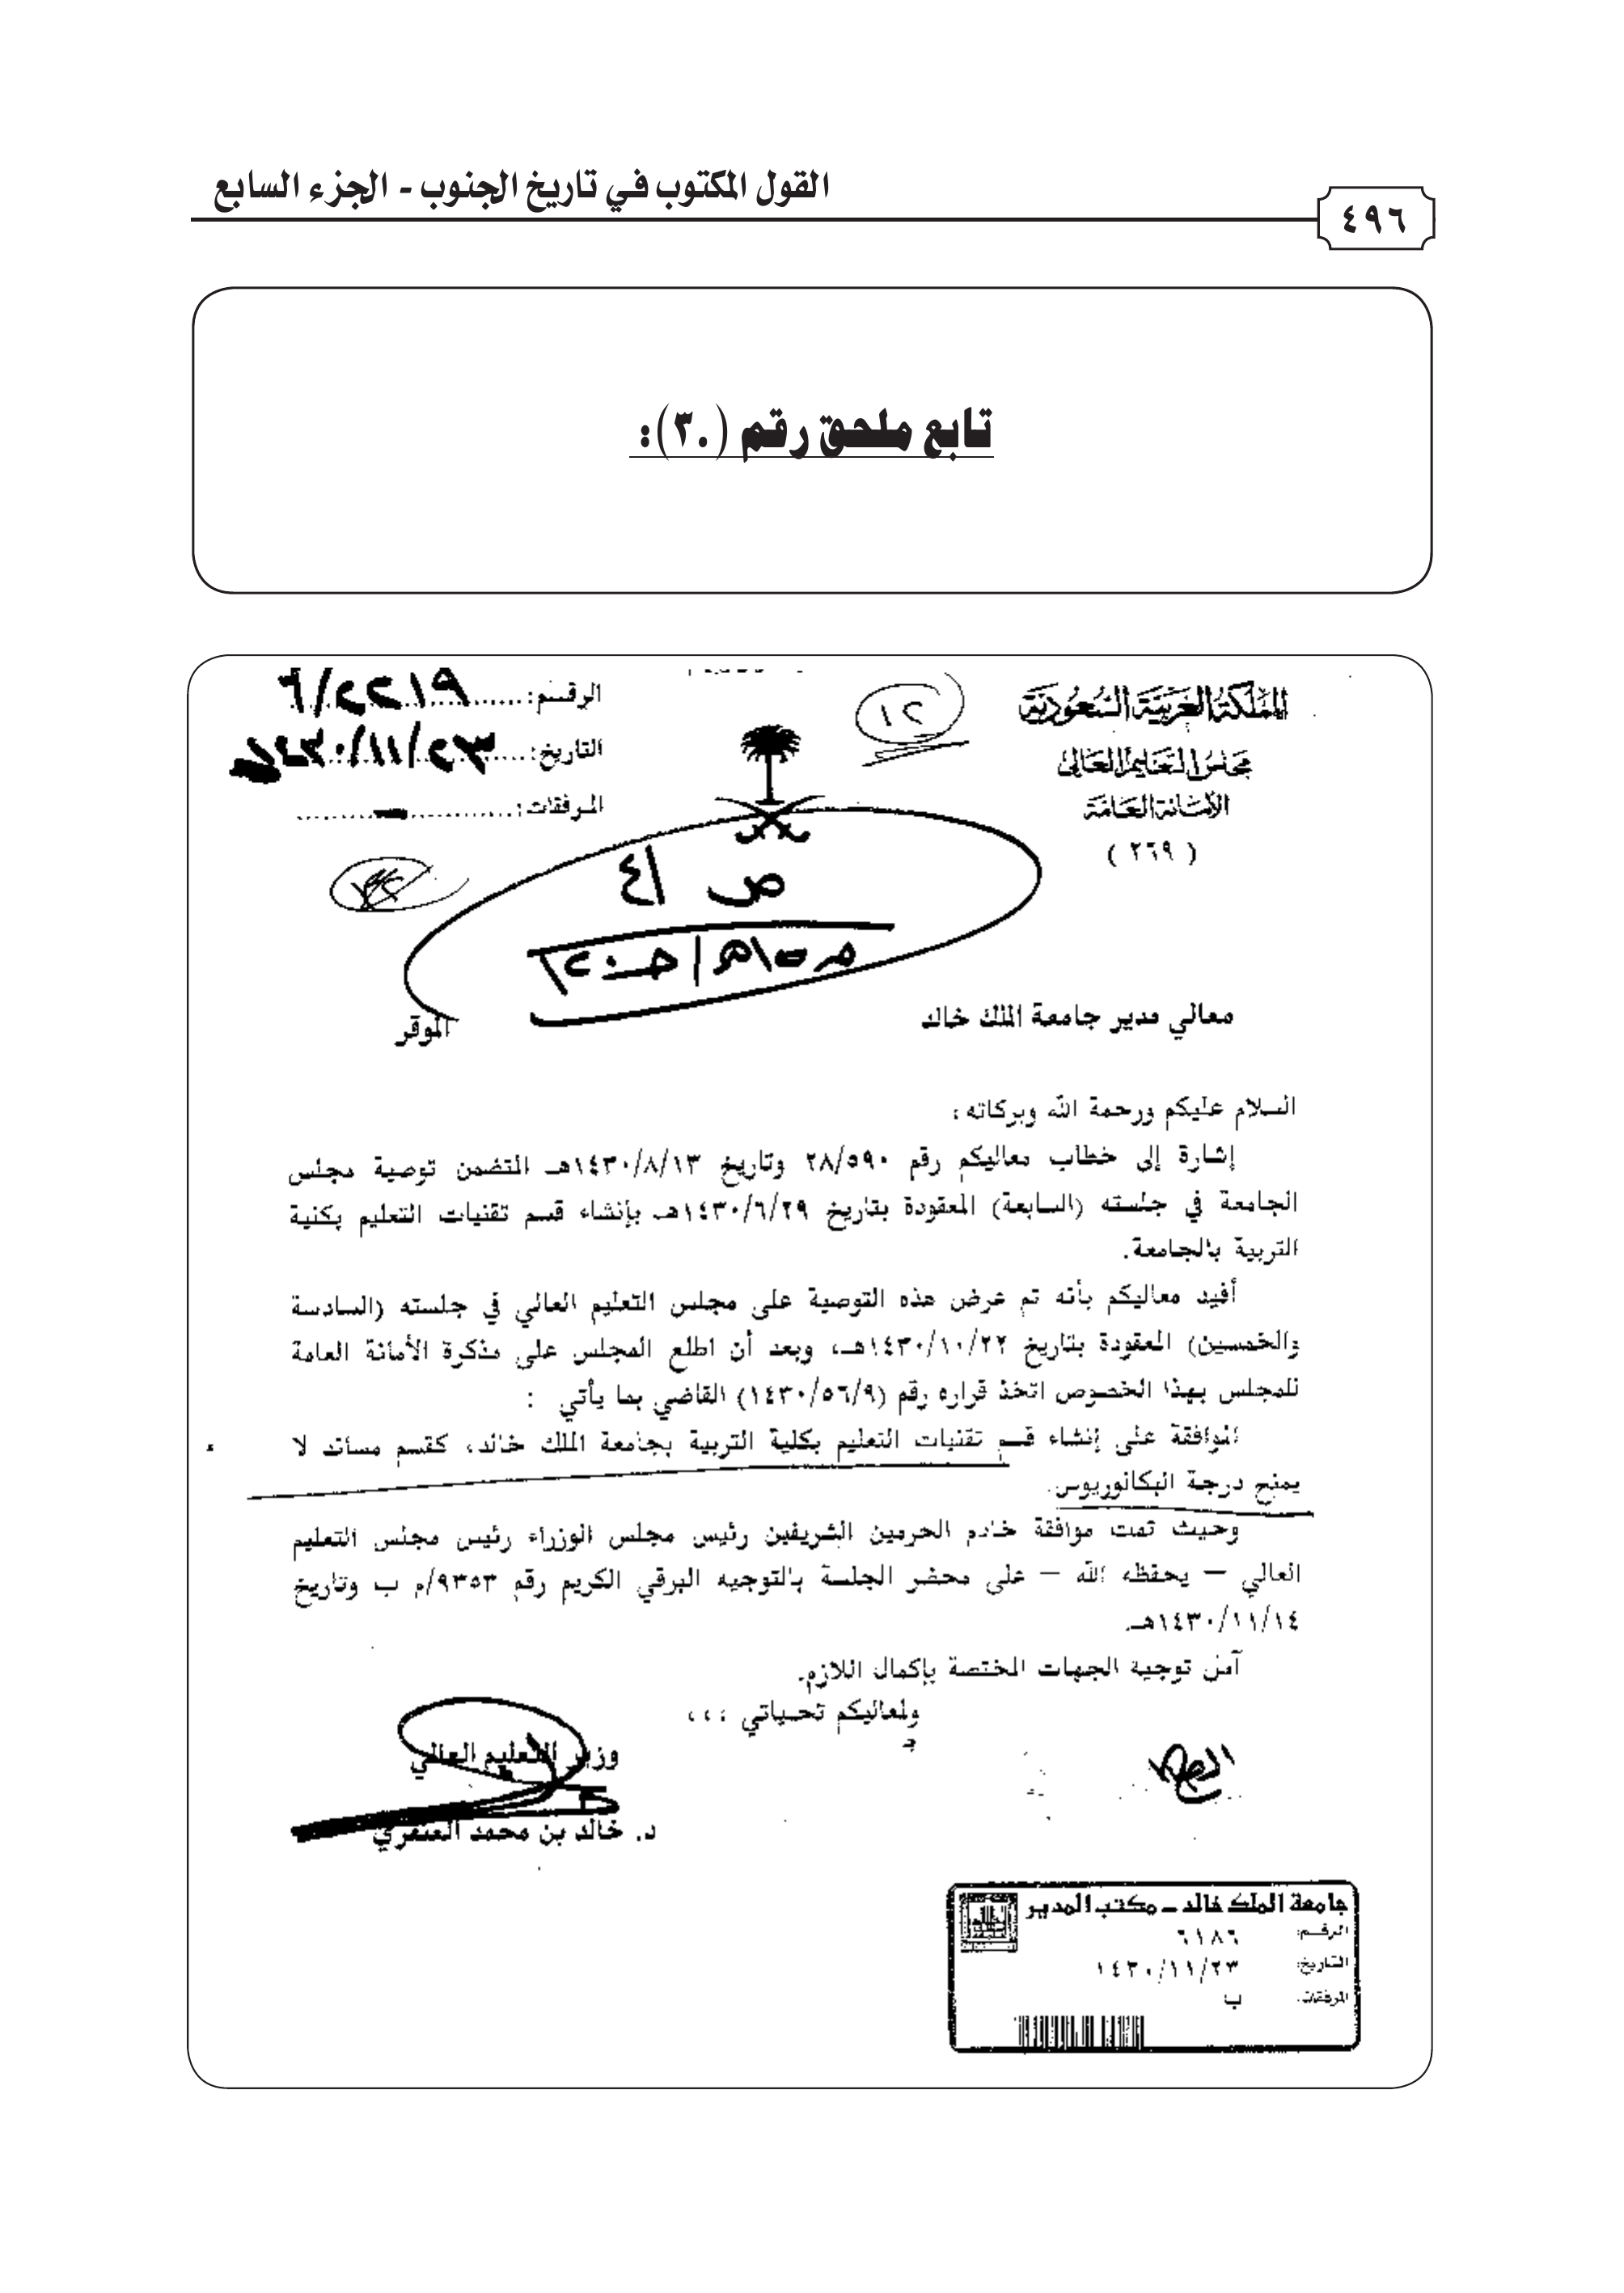 القول المكتوب في تاريخ الجنوب - الجزء السابع
٤٩٦
تابع ملحق رقم (٣٠):
المملكة العربية السعودية
مجلس التعليم العالي
الأمانة العامة
( ٢٦٩ )
١٢
الرقم: ٦/٢٢١٩
التاريخ: ١٤٣٠/١١/٢٣
المرفقات: ــ
ص ٤١
معالي مدير جامعة الملك خالد الموقر
السلام عليكم ورحمة الله وبركاته ،
إشارة إلى خطاب معاليكم رقم ٢٨/٥٩٠ وتاريخ ١٤٣٠/٨/١٣هـ المتضمن توصية مجلس
الجامعة في جلسته (السابعة) المعقودة بتاريخ ١٤٣٠/٦/٢٩هـ بإنشاء قسم تقنيات التعليم بكلية
التربية بالجامعة.
أفيد معاليكم بأنه تم عرض هذه التوصية على مجلس التعليم العالي في جلسته (السادسة
والخمسين) المعقودة بتاريخ ١٤٣٠/١٠/٢٢هـ، وبعد أن اطلع المجلس على مذكرة الأمانة العامة
للمجلس بهذا الخصوص اتخذ قراره رقم (١٤٣٠/٥٦/٩) القاضي بما يأتي :
الموافقة على إنشاء قسم تقنيات التعليم بكلية التربية بجامعة الملك خالد، كقسم مساند لا
يمنح درجة البكالوريوس.
وحيث تمت موافقة خادم الحرمين الشريفين رئيس مجلس الوزراء رئيس مجلس التعليم
العالي – يحفظه الله – على محضر الجلسة بالتوجيه البرقي الكريم رقم ٩٣٥٣/م ب وتاريخ
١٤٣٠/١١/١٤هـ.
آمل توجيه الجهات المختصة بإكمال اللازم.
ولمعاليكم تحياتي ،،،
وزير التعليم العالي
د. خالد بن محمد العنقري
جامعة الملك خالد - مكتب المدير
الرقم: ٦١٨٦
التاريخ: ١٤٣٠/١١/٢٣
المرفقات: ب